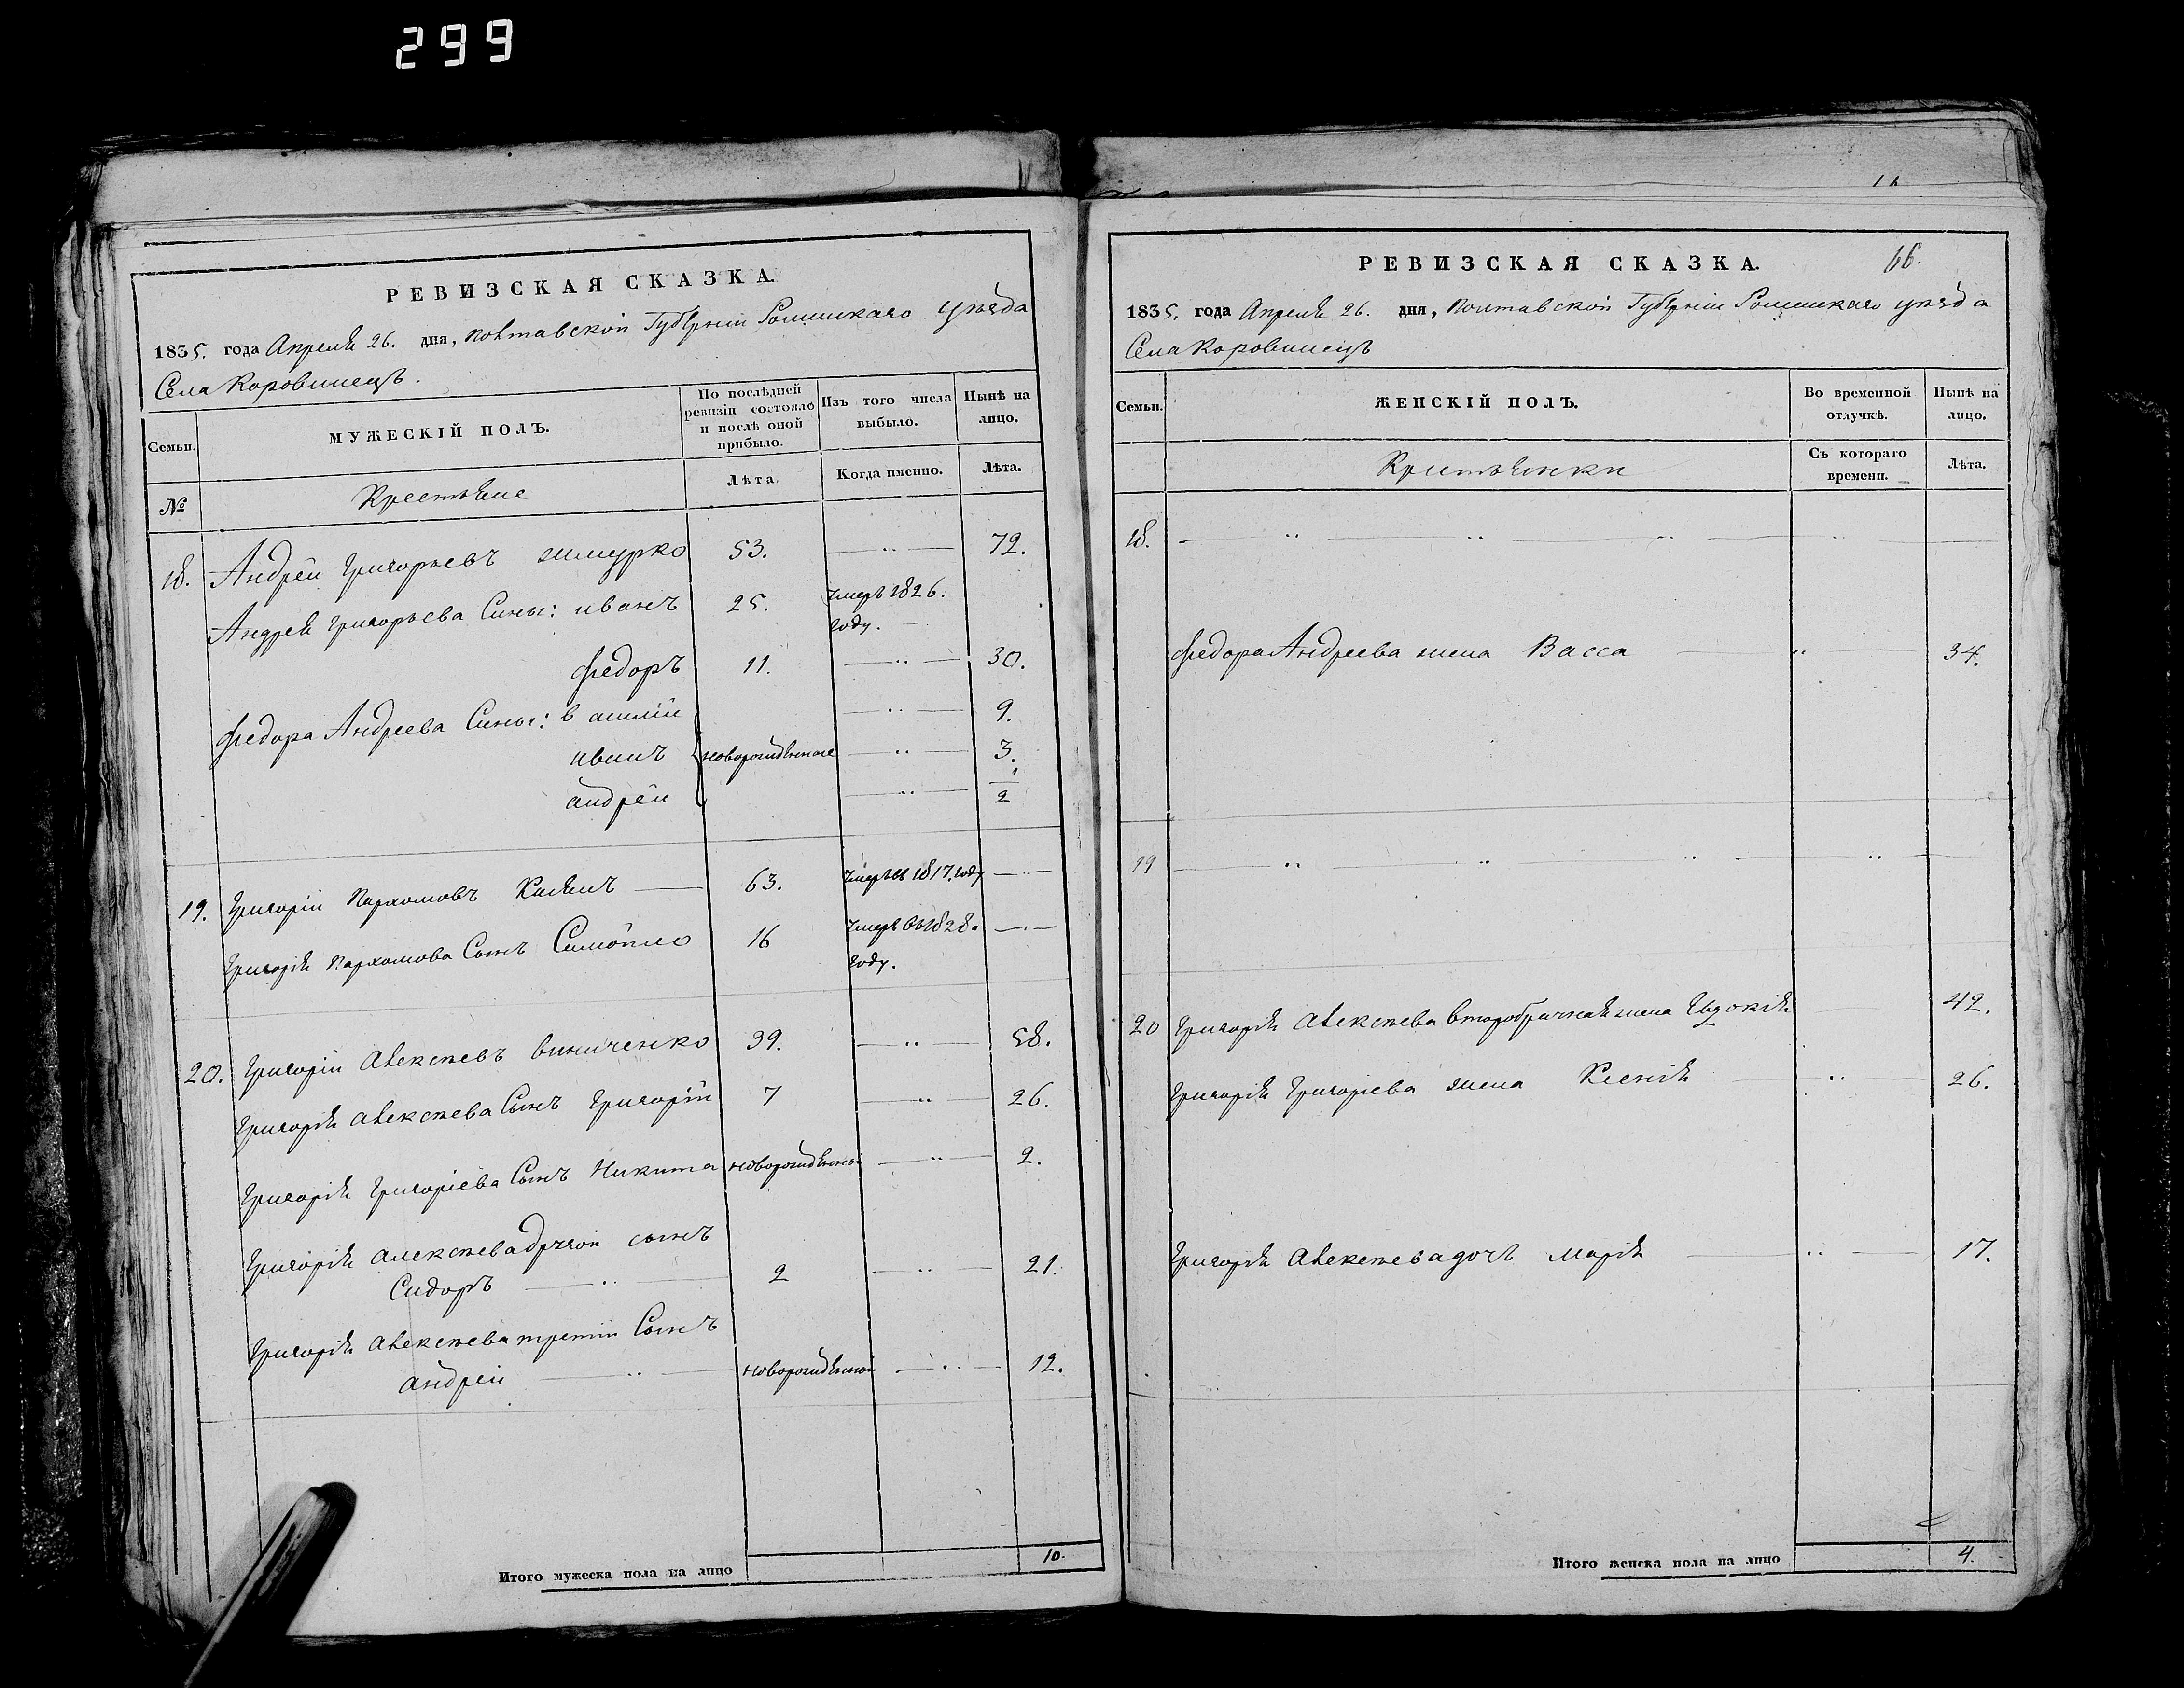 299
РЕВИЗСКАЯ СКАЗКА.
1835. года Апреля 26. дня, Полтавской Губерніи Роменскаго уѣзда
Села Коровинецъ.
Семьи.
МУЖЕСКІЙ ПОЛЪ.
По послѣдней ревизіи состояло и послѣ оной прибыло.
Изъ того числа выбыло.
Нынѣ на лицо.
№
Крестьяне
Лѣта.
Когда именно.
Лѣта.
18. Андрей Григорьевъ 53. 72.
Андрея Григорьева Сыны: иванъ 25. умеръ 1826. году.
Федоръ 11. 30.
Федора Андреева Сыны: василій 9.
иванъ новорожденные 3.
андрей 1/2
19. Григорій Пархомовъ 63. умеръ в 1817. году
Григорія Пархомова Сынъ Самойло 16 умеръ в 1828. году.
20. Григорій Алексѣевъ Виниченко 39. 58.
Григорія Алексѣева Сынъ Григорій 7 26.
Григорія Григоріева Сынъ Никита новорожденный 2.
Григорія Алексѣева другой сынъ
Сидоръ 2 21.
Григорія Алексѣева третій Сынъ
андрей новорожденной 12.
Итого мужеска пола на лицо 10.
РЕВИЗСКАЯ СКАЗКА. 66.
1835. года Апреля 26. дня, Полтавской Губерніи Роменскаго уѣзда
Села Коровинецъ
Семьи.
ЖЕНСКІЙ ПОЛЪ.
Во временной отлучкѣ.
Нынѣ на лицо.
Крестьянки
Съ котораго времени.
Лѣта.
18.
Федора Андреева жена Васса 34.
19
20 Григорія Алексѣева второбрачная жена Евдокія 42.
Григорія Григоріева жена Ксенія 26.
Григорія Алексѣева дочъ Марія 17.
Итого женска пола на лицо 4.